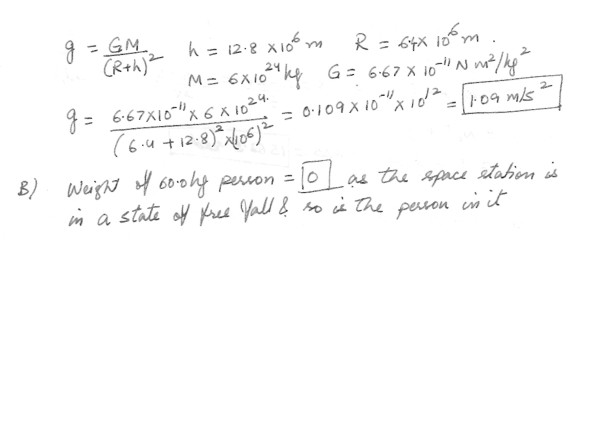 g = GM/(R+h)² h = 12.8 x10⁶ m R = 6.4x 10⁶ m.
M = 6x10²⁴ kg G = 6.67 x 10⁻¹¹ N m²/kg²
g = 6.67x10⁻¹¹ x 6 x 10²⁴/(6.4 + 12.8)² x(10⁶)² = 0.109 x 10⁻¹¹ x 10¹² = 1.09 m/s²
B) Weight of 60.0kg person = 0 as the space station is
in a state of free fall & so is the person in it